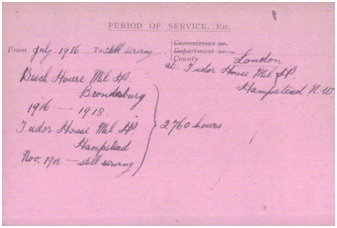 PERIOD OF SERVICE, Etc.
From July 1916 To still serving Commitment or
Department or
County London
at Tudor House Mil Hp.
Hampstead N.W
Beech House Mil Hp.
Brondesbury
1916 — 1918.
Tudor House Mil Hp.
Hampstead
Nov. 1918 — still serving
2760 hours